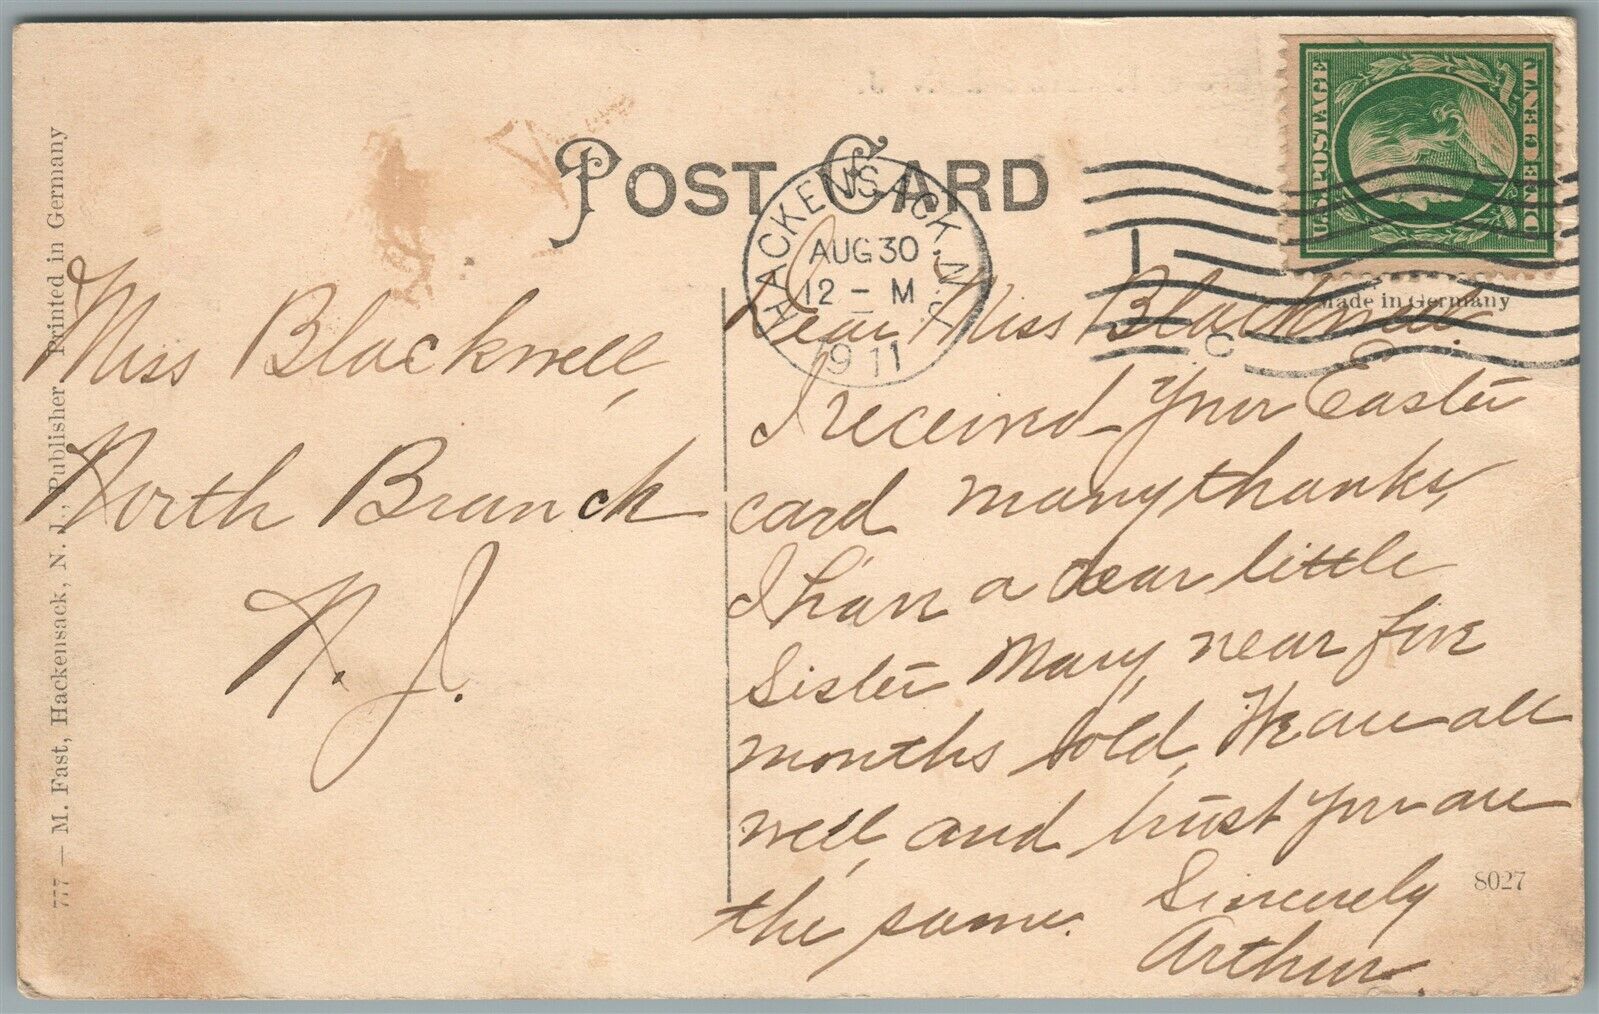 POST CARD
HACKENSACK, N.J.
AUG 30
12 - M
1911
U.S. POSTAGE
ONE CENT
Made in Germany
777 — M. Fast, Hackensack, N. J., Publisher Printed in Germany
Miss Blackwell,
North Branch
N. J.
Dear Miss Blackwell
I received your Easter
card many thanks,
I have a dear little
Sister Mary, near five
months old, We are all
well, and trust you are
the same. Sincerely
Arthur
8027